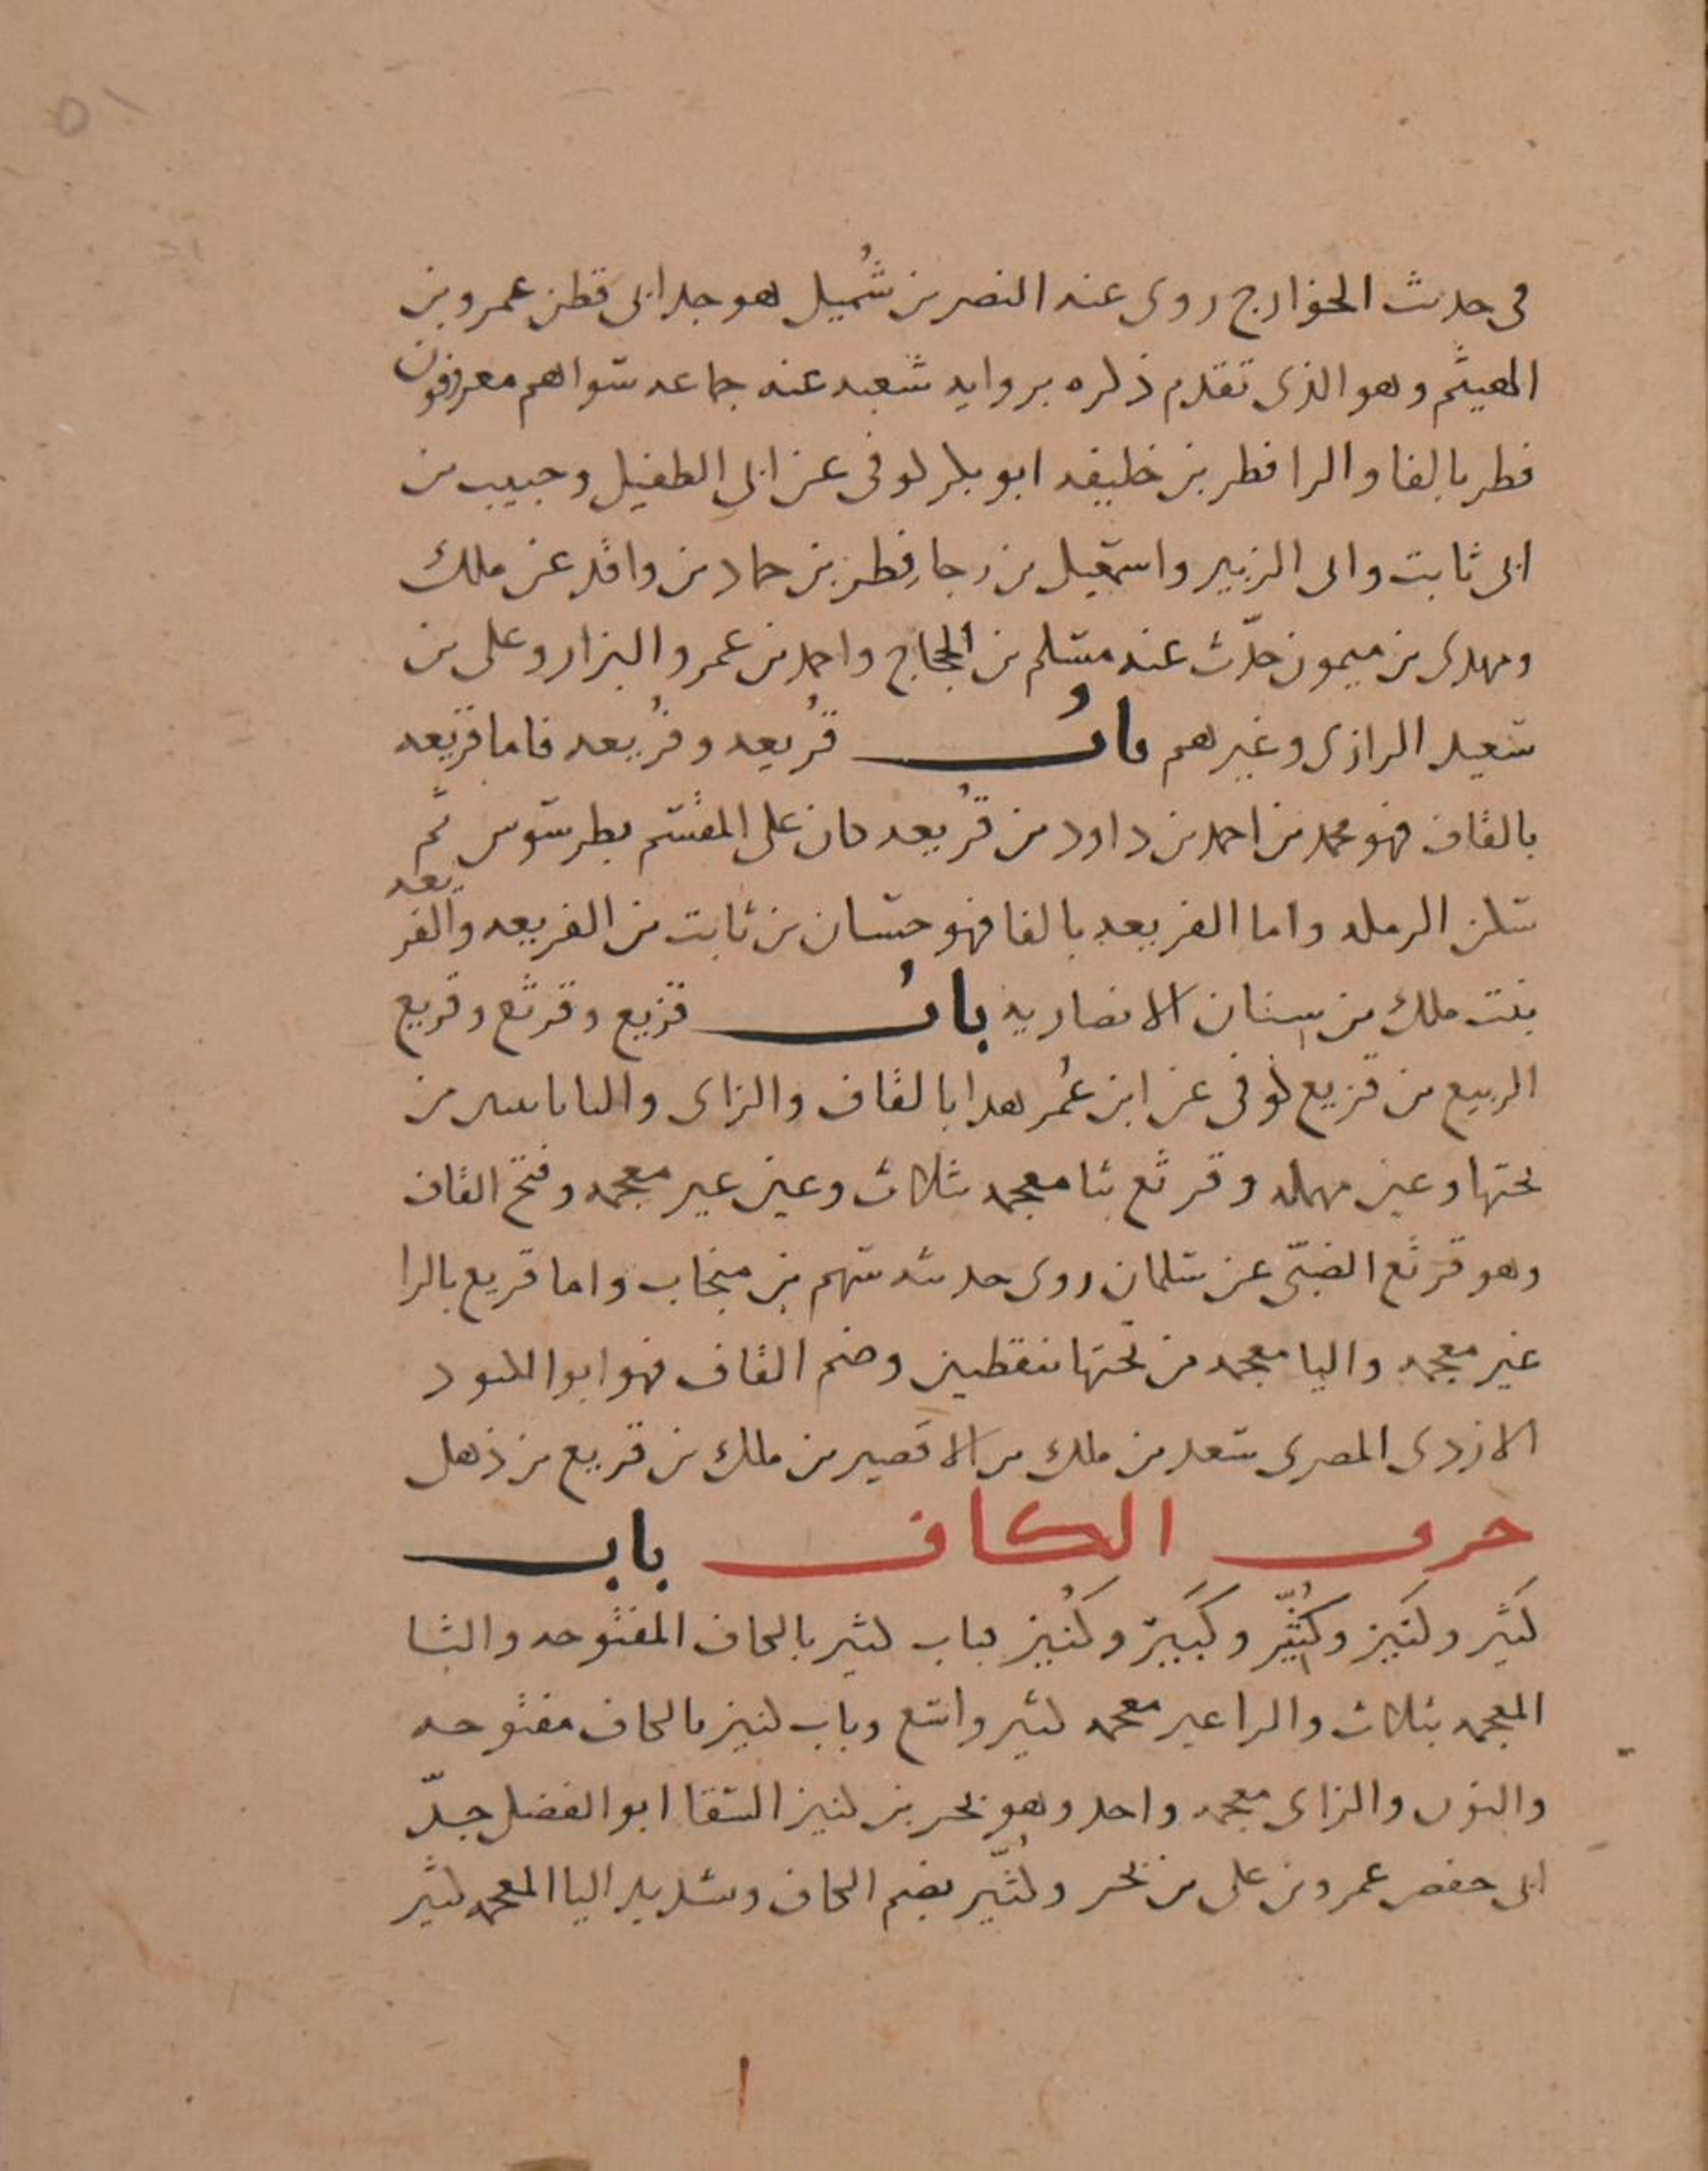 ٥١
فى حديث الخوارج روى عنه النضر بن شُميل هو جد ابى قطن عمرو بن
الهيثم وهو الذى تقدم ذكره برواية شعبه عنه جماعه سواهم معروفون
فطر بالفا والرا فطر بن خليفه ابو بكر كوفى عن ابى الطفيل وحبيب بن
ابى ثابت وابى الزبير واسمعيل بن رجا فِطر بن حماد بن واقد عن ملك
ومهدى بن ميمون حدّث عنه مسلم بن الحجاج واحمد بن عمرو البزار وعلى بن
سعيد الرازى وغيرهم بابُ قُريعه وفُريعه فاما قريعه
بالقاف فهو محمد بن احمد بن داود بن قُريعه كان على المقسم بطرسوس ثم
سكن الرمله واما الفريعه بالفا فهو حسان بن ثابت بن الفريعه والفريعه
بنت ملك بن سنان الانصاريه بابُ قزيع وقرثع وقريع
الربيع بن قزيع كوفى عن ابن عُمر هدا بالقاف والزاى واليا باثنين من
تحتها وعين مهمله وقرثع بثا معجمه بثلاث وعين غير معجمه وفتح القاف
وهو قرثع الضبّى عن سلمان روى حديثه سهم بن منجاب واما قريع بالرا
غير معجمه واليا معجمه من تحتها بنقطتين وضم القاف فهو ابوا الكنود
الازدى المصرى سعد بن ملك بن الاقصير بن ملك بن قريع بن ذهل
حرف الكاف باب
كَثير وكَنيز وكُثَيّر وكَبير وكُنيز فباب كثير بالكاف المفتوحه والثا
المعجمه بثلاث والرا غير معجمه كثير واسع وباب كنيز بالكاف مفتوحه
والنون والزاى معجمه واحد وهو بحر بن كنيز السقا ابو الفضل جدّ
ابى حفص عمرو بن على بن بحر وكُثيّر بضم الكاف وتشديد اليا المعجمه كثير